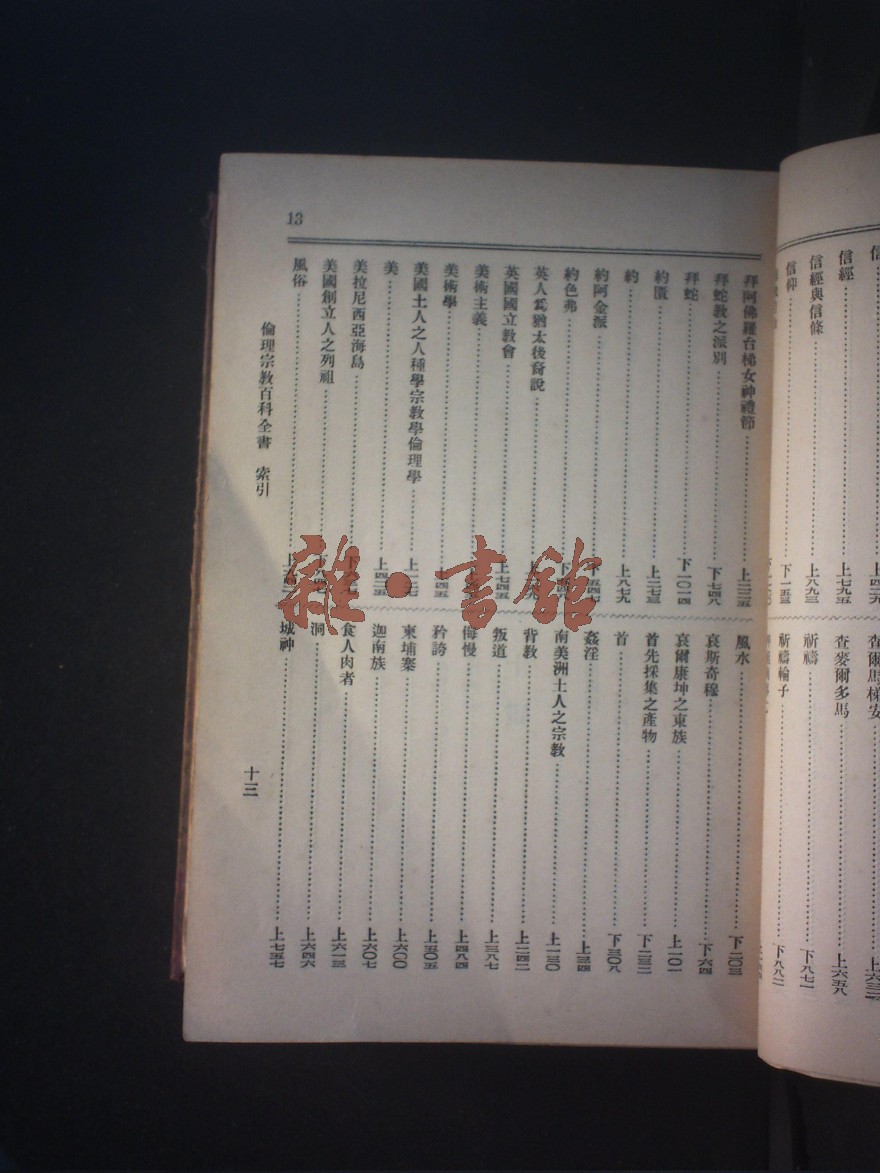 信經……上七九五
信經與信條……上八九三
信仰……下一五三
查爾馬梯安
查麥爾多馬……上六五八
祈禱……下八七一
祈禱輪子……下八八二
13
拜阿佛羅台梯女神禮節……上二二五
拜蛇教之派別……下七四八
拜蛇……下一〇一四
約匱……上二七三
約……上八七九
約阿金派……下五四七
約色弗
英人爲猶太後裔說
英國國立教會……上七四五
美術主義
美術學……上四五
美國土人之人種學宗教學倫理學
美……上四五
美拉尼西亞海島
美國創立人之列祖
風俗
風水……下二〇三
哀斯奇穆……下六四
哀爾康坤之東族……上一〇一
首先採集之產物……下二三二
首……下三〇八
姦淫……上三四
南美洲土人之宗教……上一三〇
背教……上二四二
叛道……上三八七
侮慢……上四八四
矜誇……上五〇五
柬埔寨……上六〇〇
迦南族……上六〇七
食人肉者……上六一三
洞……上六四六
城神……上七五七
倫理宗教百科全書 索引
十三
雜·書館